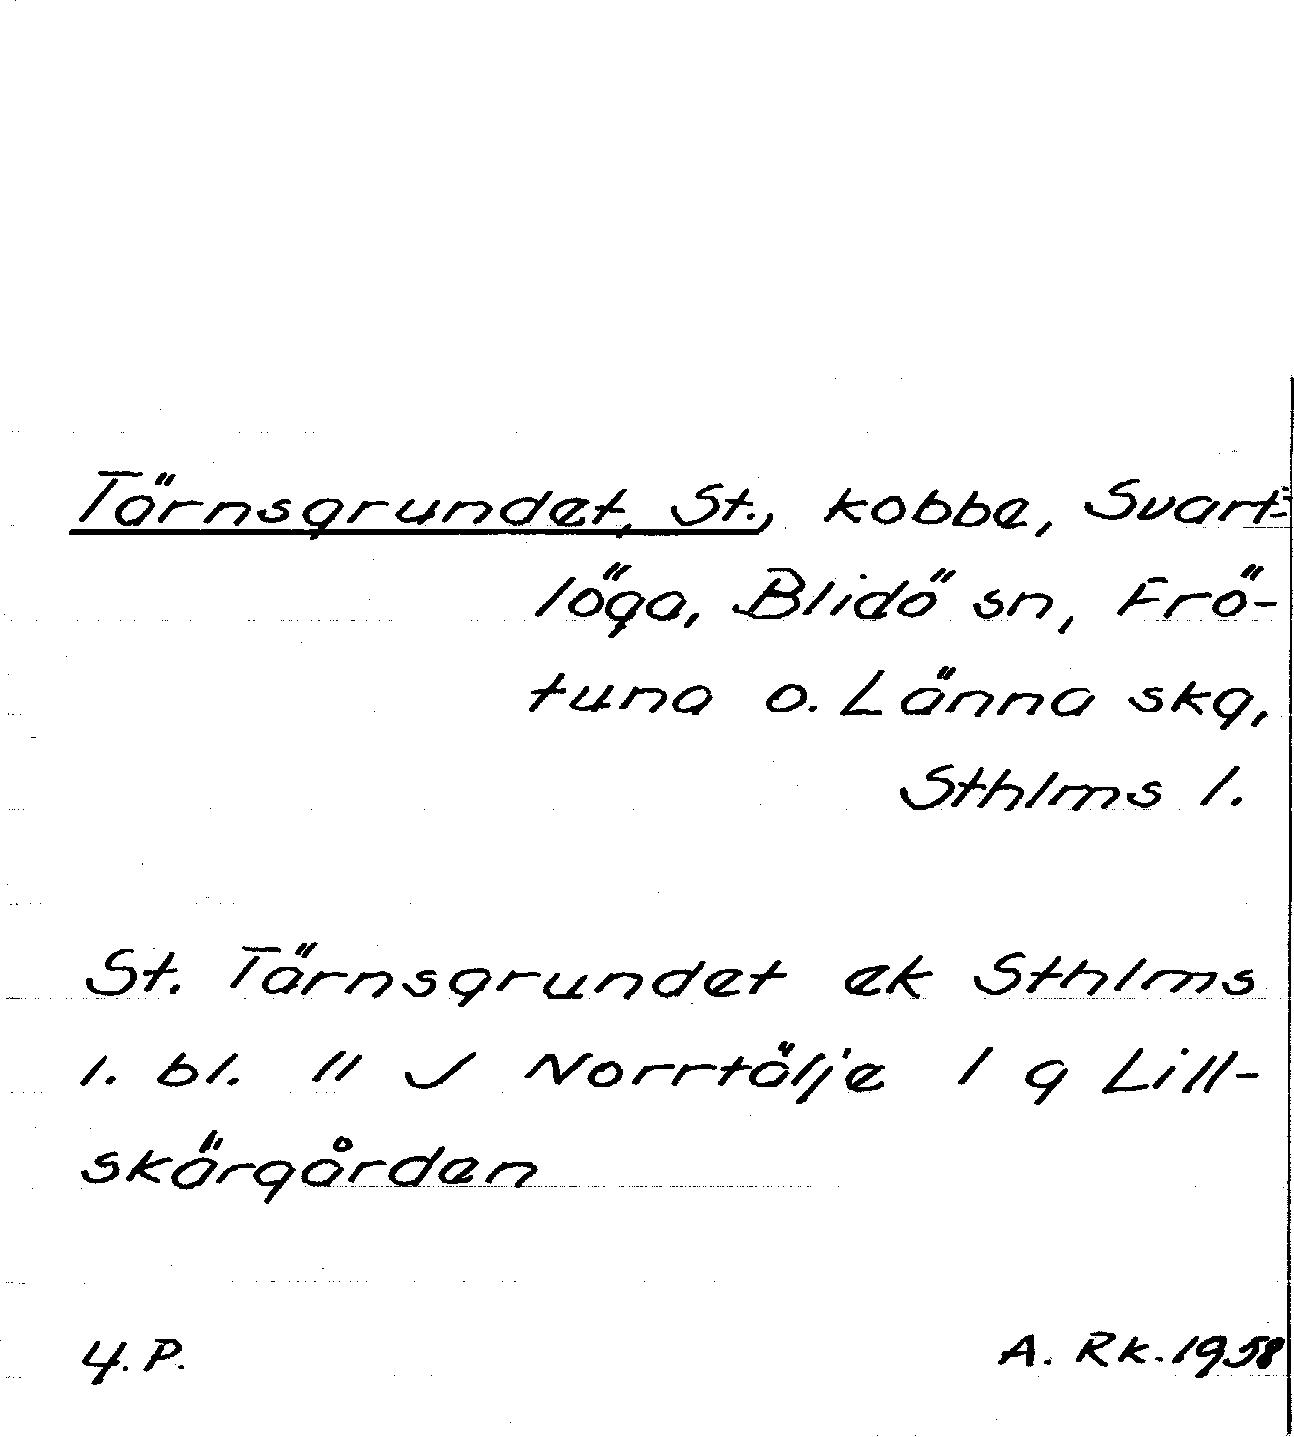 Tärnsgrundet, St., kobbe, Svart-
löga, Blidö sn, Frö-
tuna o. Länna skg,
Sthlms l.
St. Tärnsgrundet ek Sthlms
l. bl. 11 J Norrtälje l g Lill-
skärgården
Y. P.
A. Rk. 1958